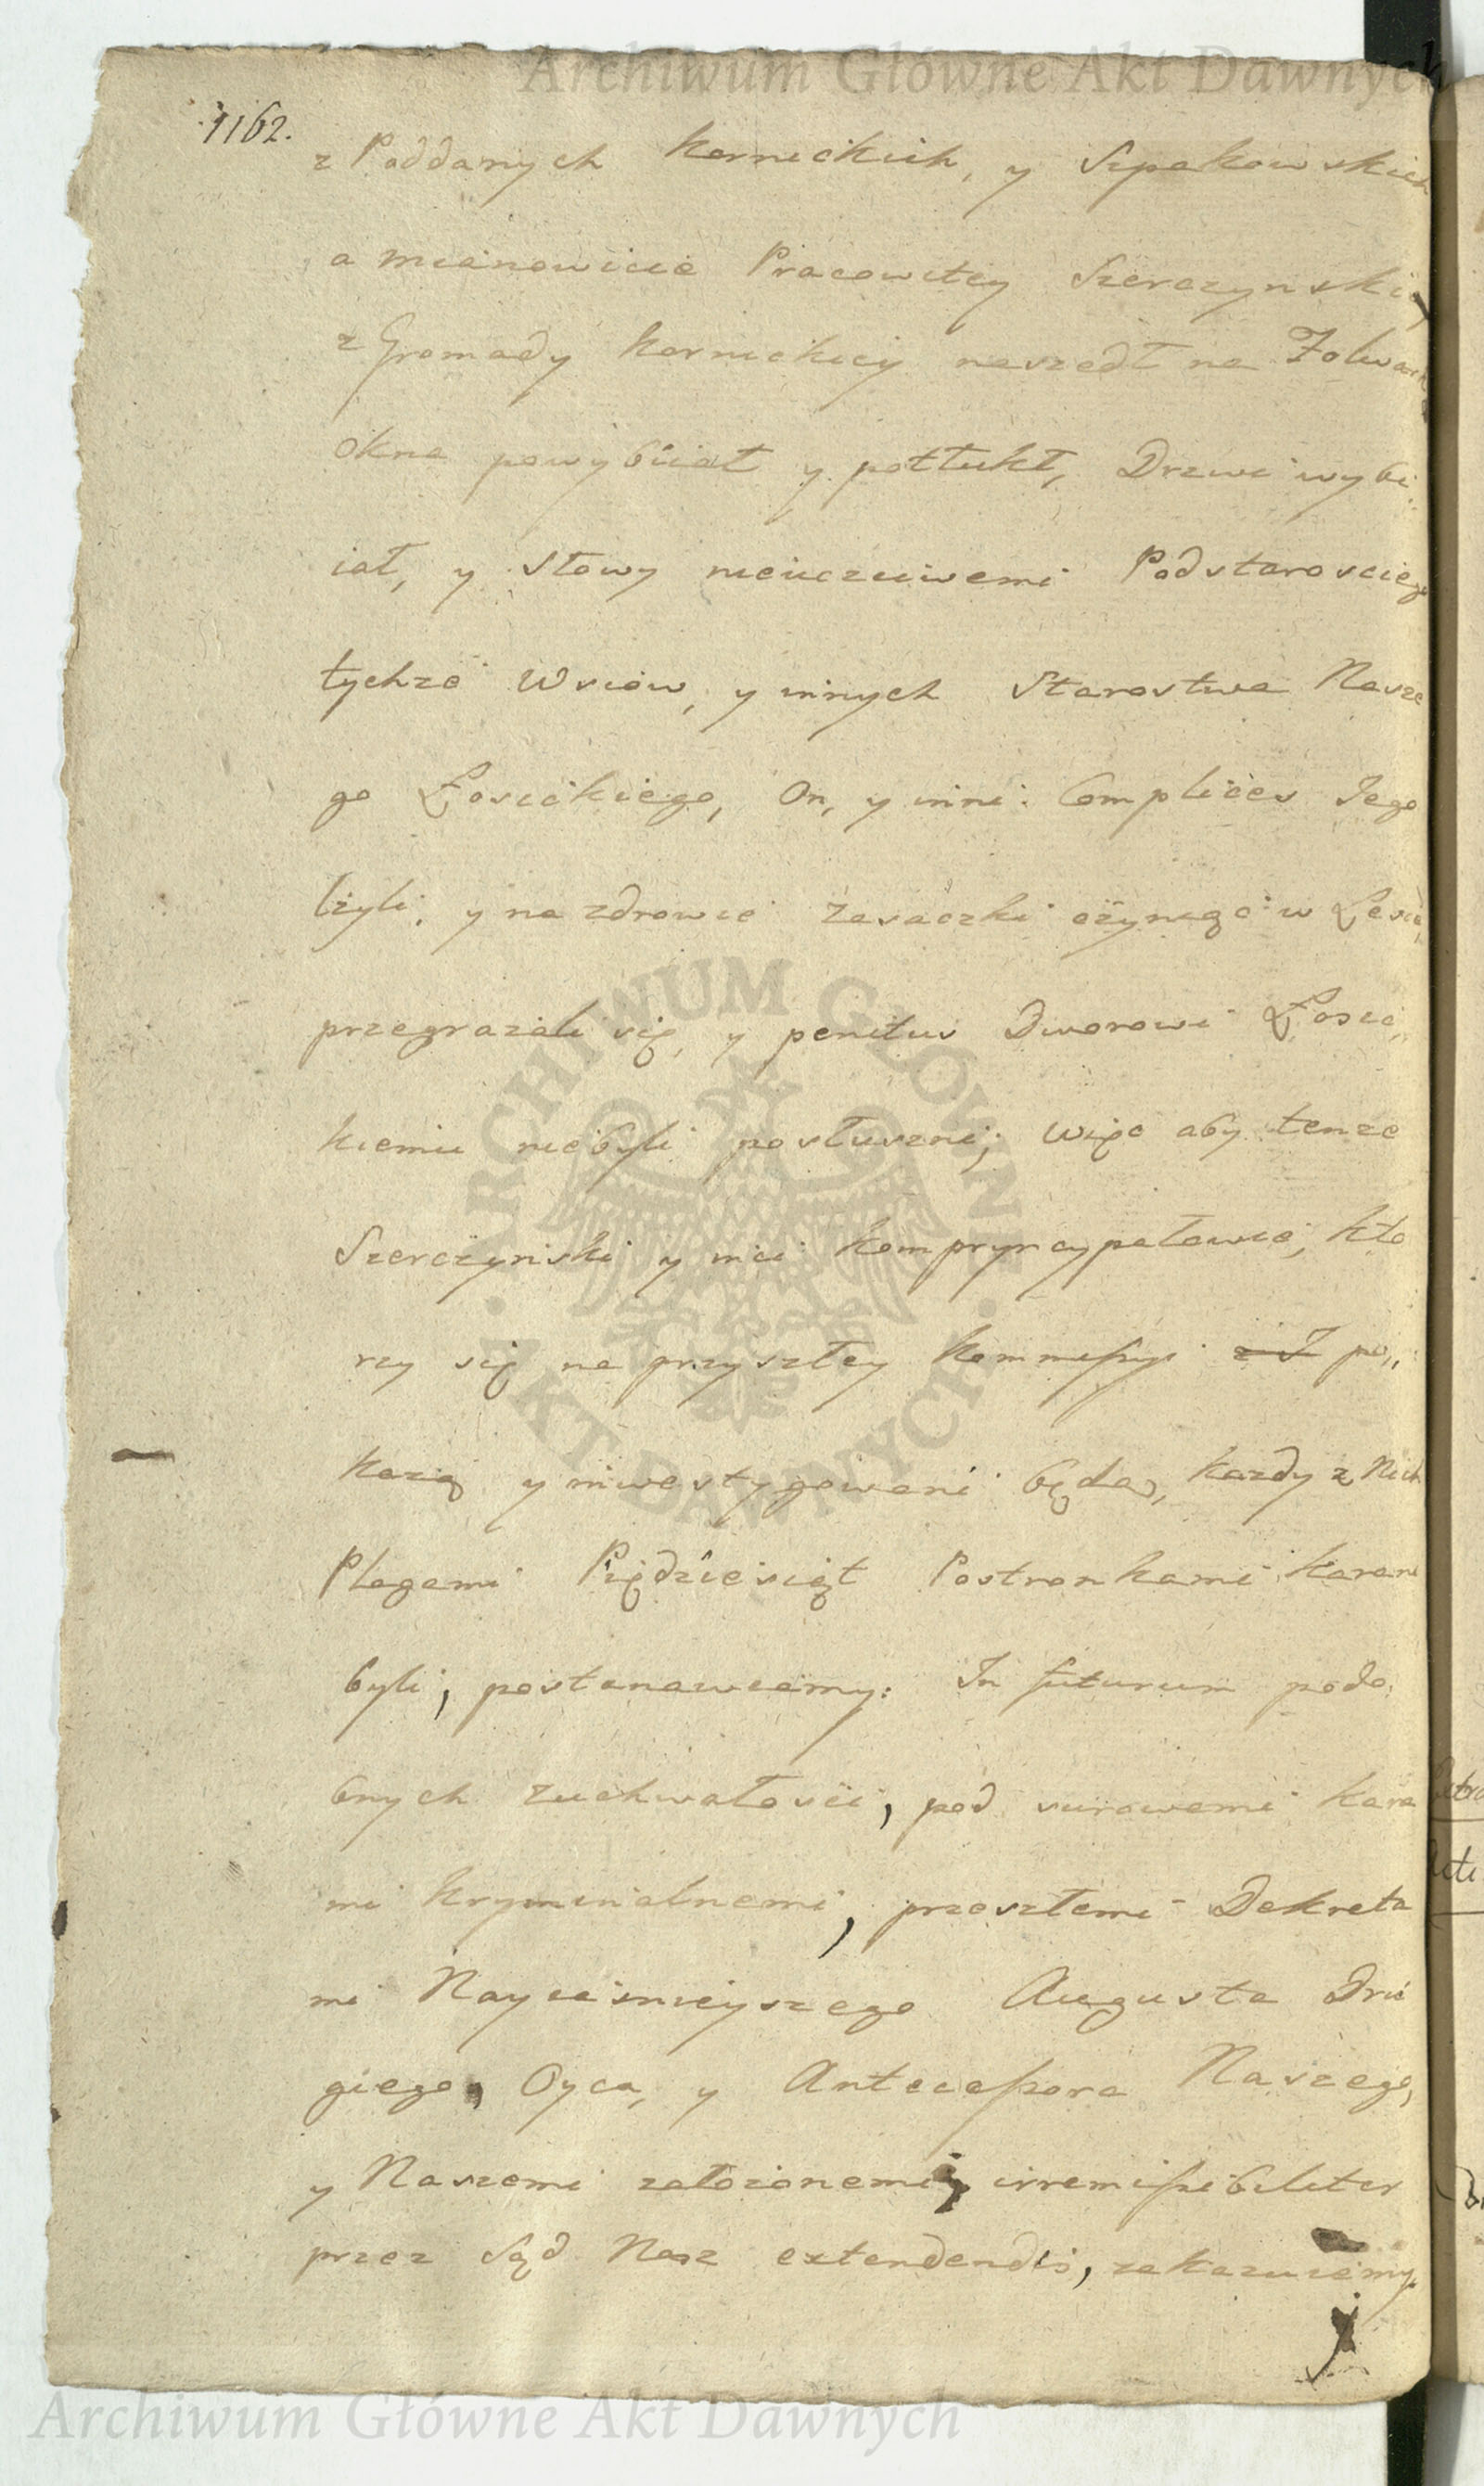 Archiwum Główne Akt Dawnych
1162.
z Poddanych Kornickich, y Szpakowskich
a mianowicie Pracowitey Szerczynskiey
z Gromady Kornickiey naszedł na Folwark
okna powybiiał y potłukł, Drzwi wybi
iał, y słowy nieuczciwemi Podstarosciego
tychze Wsiow, y innych Starostwa Nasze
go Łosickiego, On, y inni Complices Jego
lżyli, y na zdrowie zasaczki czyniąc w Lesie,
przegrazali się, y penitus Dworowi Łosic
kiemu niebyli posłuszni; więc aby tenze
Szerczynski y inni Kompryncypałowie, kto
rzy się na przyszłey Kommissyi po,,
kazą y inwestygowani będą, kazdy z Nich
Plagami Piędziesiąt Postronkami karani
byli, postanawiamy: In futurum podo
bnych zuchwałosci, pod surowemi kara
mi kryminalnemi, przeszłemi Dekreta
mi Nayiasnieyszego Augusta Dru
giego, Oyca, y Antecessora Naszego,
y Naszemi załozonemi, irremissibiliter
przez Sąd Nasz extendendis, zakazuiemy.
ARCHIWUM GŁÓWNE
AKT DAWNYCH
Archiwum Główne Akt Dawnych